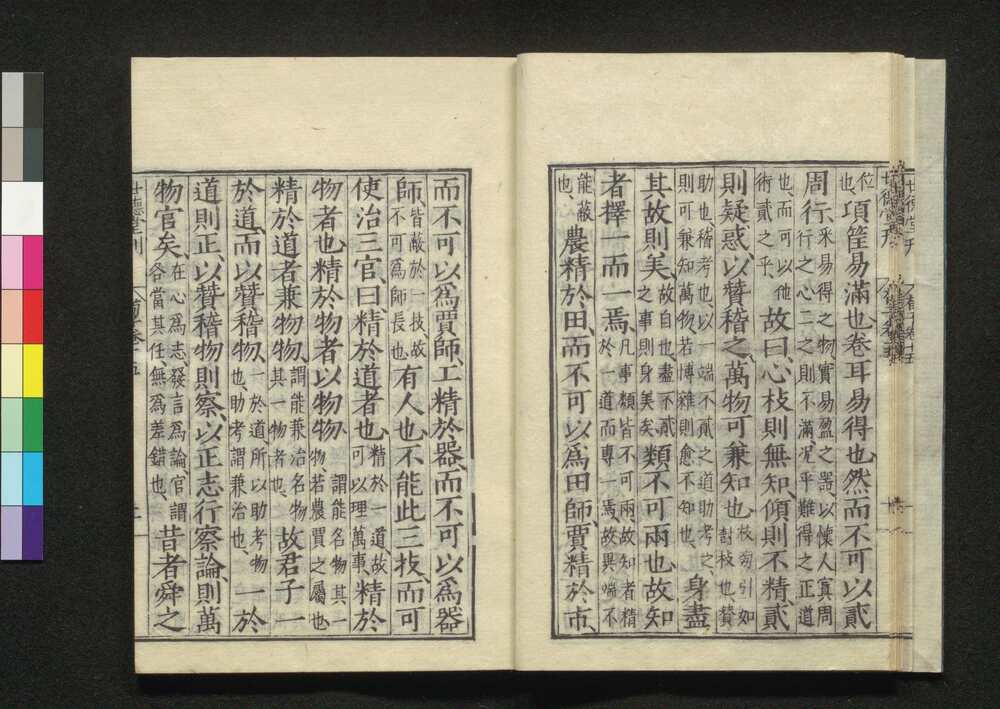 位也項筐易滿也卷耳易得也然而不可以貳
周行采易得之物實易盈之器以懷人寘周行之心二之則不滿况乎難得之正道
也而可以他術貳之乎故曰心枝則無知傾則不精貳
則疑惑以贊稽之萬物可兼知也枝旁引如樹枝也贊
助也稽考也以一端不貳之道助考之則可兼知萬物若博雜則愈不知也身盡
其故則美故事也盡不貳之事則身美矣類不可兩也故知
者擇一而一焉凡事類皆不可兩故知者精於一道而專一焉故異端不
能蔽也農精於田而不可以爲田師賈精於市
而不可以爲賈師工精於器而不可以爲器
師皆蔽於一技故不可爲師長也有人也不能此三技而可
使治三官曰精於道者也精於一道故可以理萬事精於
物者也精於物者以物物謂能名物其一物若農賈之屬也
精於道者兼物物謂能兼治名物其一物者也故君子一
於道而以贊稽物一於道所以助考物也助考謂兼治也一於
道則正以贊稽物則察以正志行察論則萬
物官矣在心爲志發言爲論官謂各當其任無爲差錯也昔者舜之